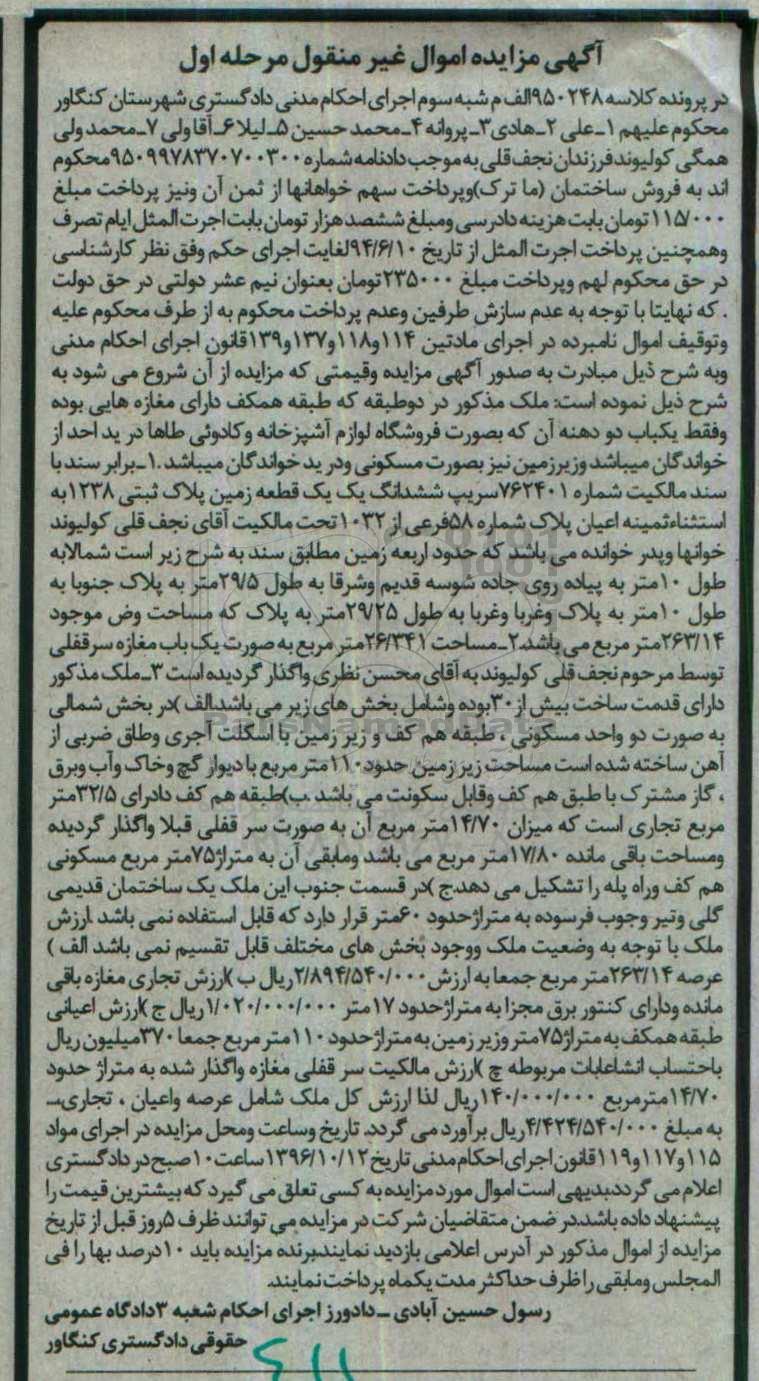 آگهی مزایده اموال غیر منقول مرحله اول
در پرونده کلاسه ۹۵۰۲۴۸الف م شبه سوم اجرای احکام مدنی دادگستری شهرستان کنگاور
محکوم علیهم ۱_علی ۲_هادی۳_پروانه ۴_محمد حسین ۵_لیلا ۶_آقا ولی ۷_محمد ولی
همگی کولیوند فرزندان نجف قلی به موجب دادنامه شماره ۹۵۰۹۹۷۸۳۷۰۷۰۰۳۰۰محکوم
اند به فروش ساختمان (ما ترک)وپرداخت سهم خواهانها از ثمن آن ونیز پرداخت مبلغ
۱۱۵/۰۰۰تومان بابت هزینه دادرسی ومبلغ ششصد هزار تومان بابت اجرت المثل ایام تصرف
وهمچنین پرداخت اجرت المثل از تاریخ ۹۴/۶/۱۰لغایت اجرای حکم وفق نظر کارشناسی
در حق محکوم لهم وپرداخت مبلغ ۲۳۵۰۰۰تومان بعنوان نیم عشر دولتی در حق دولت
. که نهایتا با توجه به عدم سازش طرفین وعدم پرداخت محکوم به از طرف محکوم علیه
وتوقیف اموال نامبرده در اجرای مادتین ۱۱۴و۱۱۸و۱۳۷و۱۳۹قانون اجرای احکام مدنی
وبه شرح ذیل مبادرت به صدور آگهی مزایده وقیمتی که مزایده از آن شروع می شود به
شرح ذیل نموده است: ملک مذکور در دوطبقه که طبقه همکف دارای مغازه هایی بوده
وفقط یکباب دو دهنه آن که بصورت فروشگاه لوازم آشپزخانه وکادوئی طاها در ید احد از
خواندگان میباشد وزیرزمین نیز بصورت مسکونی ودر ید خواندگان میباشد .۱_برابر سند با
سند مالکیت شماره ۷۶۲۴۰۱سریپ ششدانگ یک یک قطعه زمین پلاک ثبتی ۱۲۳۸به
استثناءثمینه اعیان پلاک شماره ۵۸فرعی از ۱۰۳۲تحت مالکیت آقای نجف قلی کولیوند
خوانها وپدر خوانده می باشد که حدود اربعه زمین مطابق سند به شرح زیر است شمالابه
طول ۱۰متر به پیاده روی جاده شوسه قدیم وشرقا به طول ۲۹/۵متر به پلاک جنوبا به
طول ۱۰متر به پلاک وغربا وغربا به طول ۲۹/۲۵متر به پلاک که مساحت وض موجود
۲۶۳/۱۴متر مربع می باشد.۲_مساحت ۲۶/۳۴۱متر مربع به صورت یک باب مغازه سرقفلی
توسط مرحوم نجف قلی کولیوند به آقای محسن نظری واگذار گردیده است ۳_ملک مذکور
دارای قدمت ساخت بیش از ۳۰بوده وشامل بخش های زیر می باشد.الف )در بخش شمالی
به صورت دو واحد مسکونی ، طبقه هم کف و زیر زمین با اسکلت آجری وطاق ضربی از
آهن ساخته شده است مساحت زیر زمین حدود ۱۱۰متر مربع با دیوار گچ وخاک وآب وبرق
، گاز مشترک با طبق هم کف وقابل سکونت می باشد .ب)طبقه هم کف دادرای ۳۲/۵متر
مربع تجاری است که میزان ۱۴/۷۰متر مربع آن به صورت سر قفلی قبلا واگذار گردیده
ومساحت باقی مانده ۱۷/۸۰متر مربع می باشد ومابقی آن به متراژ۷۵متر مربع مسکونی
هم کف وراه پله را تشکیل می دهد.ج )در قسمت جنوب این ملک یک ساختمان قدیمی
گلی وتیر وچوب فرسوده به متراژحدود ۶۰متر قرار دارد که قابل استفاده نمی باشد .ارزش
ملک با توجه به وضعیت ملک ووجود بخش های مختلف قابل تقسیم نمی باشد الف )
عرصه ۲۶۳/۱۴متر مربع جمعا به ارزش ۲/۸۹۴/۵۴۰/۰۰۰ریال ب )ارزش تجاری مغازه باقی
مانده ودارای کنتور برق مجزا به متراژحدود ۱۷متر ۱/۰۲۰/۰۰۰/۰۰۰ریال ج )ارزش اعیانی
طبقه همکف به متراژ۷۵متر وزیر زمین به متراژحدود ۱۱۰متر مربع جمعا ۳۷۰میلیون ریال
باحتساب انشاعابات مربوطه چ )ارزش مالکیت سر قفلی مغازه واگذار شده به متراژ حدود
۱۴/۷۰مترمربع ۱۴۰/۰۰۰/۰۰۰ریال لذا ارزش کل ملک شامل عرصه واعیان ، تجاری،...
به مبلغ ۴/۴۲۴/۵۴۰/۰۰۰ریال برآورد می گردد. تاریخ وساعت ومحل مزایده در اجرای مواد
۱۱۵و۱۱۷و۱۱۹قانون اجرای احکام مدنی تاریخ ۱۳۹۶/۱۰/۱۲ساعت ۱۰صبح در دادگستری
اعلام می گردد.بدیهی است اموال مورد مزایده به کسی تعلق می گیرد که بیشترین قیمت را
پیشنهاد داده باشد.در ضمن متقاضیان شرکت در مزایده می توانند ظرف ۵روز قبل از تاریخ
مزایده از اموال مذکور در آدرس اعلامی بازدید نمایند.برنده مزایده باید ۱۰درصد بها را فی
المجلس ومابقی را ظرف حداکثر مدت یکماه پرداخت نمایند.
رسول حسین آبادی _دادورز اجرای احکام شعبه ۳دادگاه عمومی
حقوقی دادگستری کنگاور
ParsNamadData